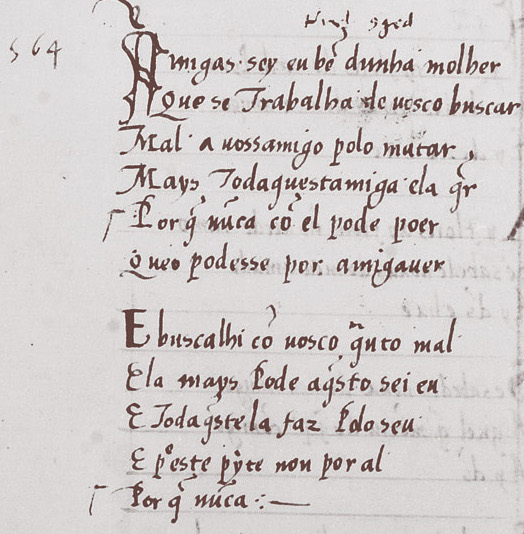 564
Amigas sey eu bē dunha molher
Que se Trabalha de uosco buscar
Mal a uossamigo polo matar,
Mays Todaquestamiga ela q̄r
Por q̄ nūca cō el pode poer
Queo podesse por amigauer
E buscalhi cō uosco quāto mal
Ela mays pode aq̄sto sei eu
E Todaq̄ste la faz polo seu
E p̄ este pȳte non por al
Por q̄ nūca :—